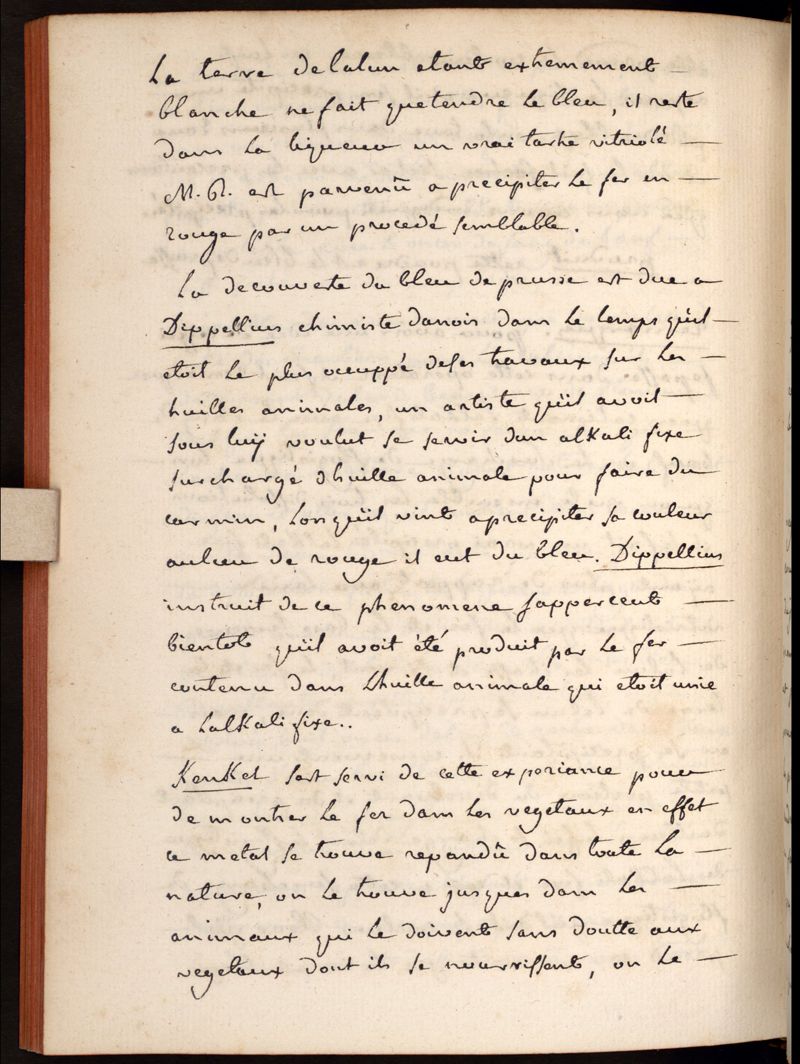 La terre de lalun etant extremement —
blanche ne fait quetendre le bleu, il reste
dans la liqueur un vrai tartre vitriolé —
M. R. est parvenû a precipiter le fer en —
rouge par un procedé semblable.
La decouverte du bleu de prusse est due a
Dippellius chimiste danois dans le temps qüil —
etoit le plus occuppé de ses travaux sur les —
huilles animales, un artiste qüil avoit —
sous luÿ voulut se servir dun alkali fixe
surchargé dhuille animale pour faire du
carmin, lorsqüil vint aprecipiter sa couleur
aulieu de rouge il eut du bleu. Dippellius
instruit de ce phenomene sappercent —
bientot qüil avoit été produit par le fer —
contenu dans Lhuille animale qui etoit unie
a Lalkali fixe..
Kenkel sest servi de cette experiance pour
demontrer le fer dans les vegetaux en effet
ce metal se trouve repandû dans toute la —
nature, on le trouve jusques dans les —
animaux qui le doivent sans doutte aux
vegetaux dont ils se nourrissent, on le —